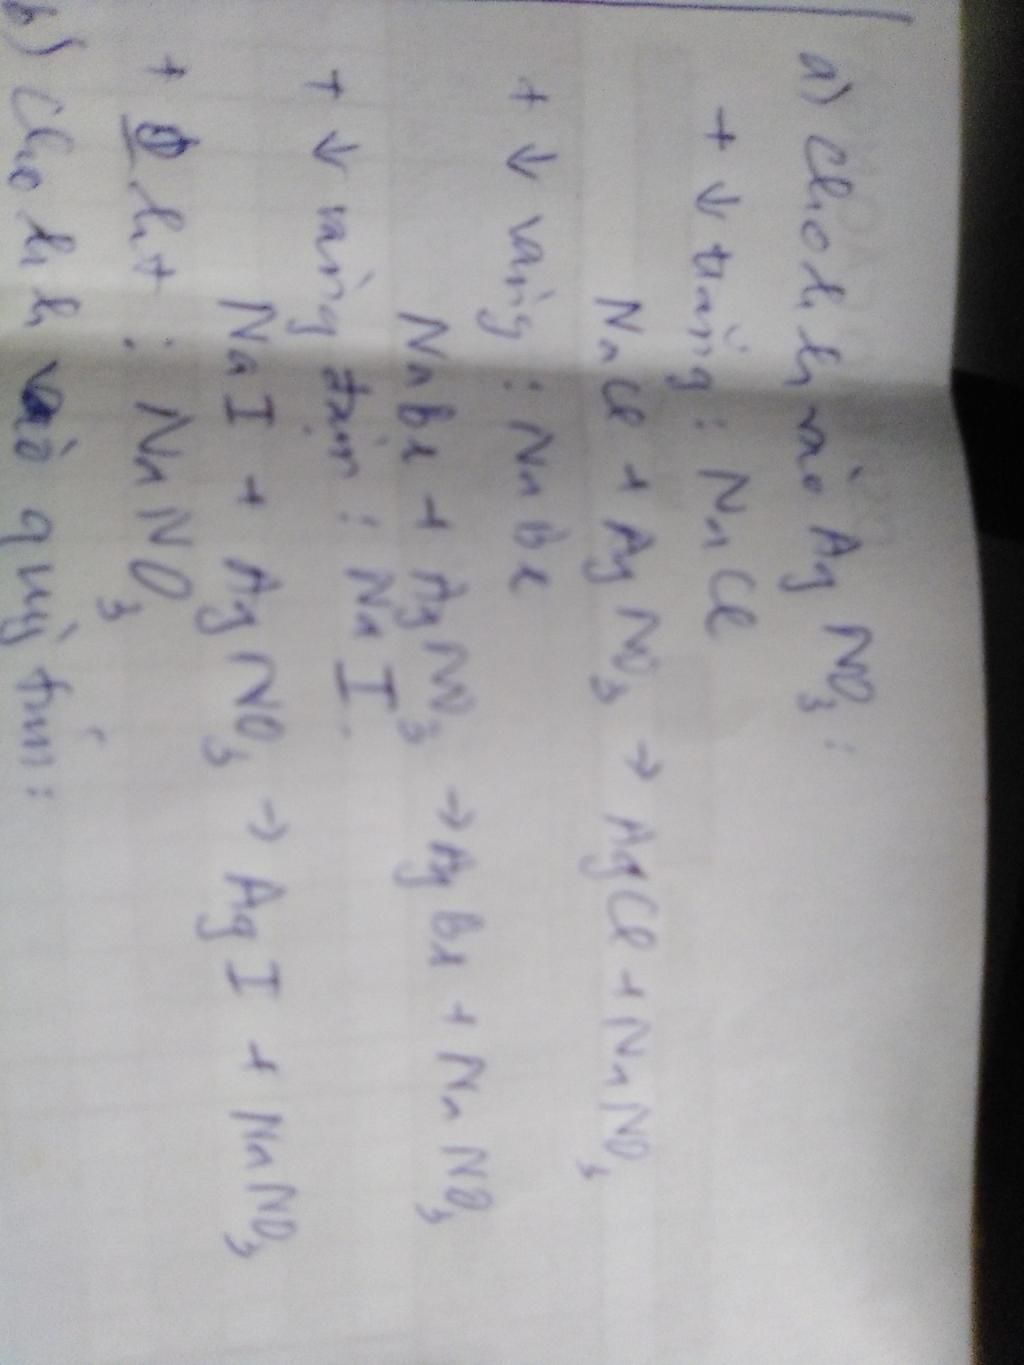 a) Cho h h vào AgNO₃ :
+ ↓ trắng : NaCl
NaCl + AgNO₃ → AgCl + NaNO₃
+ ↓ vàng : NaBr
NaBr + AgNO₃ → AgBr + NaNO₃
+ ↓ vàng đậm : NaI
NaI + AgNO₃ → AgI + NaNO₃
+ : NaNO₃
b) Cho h h vào quỳ tím :